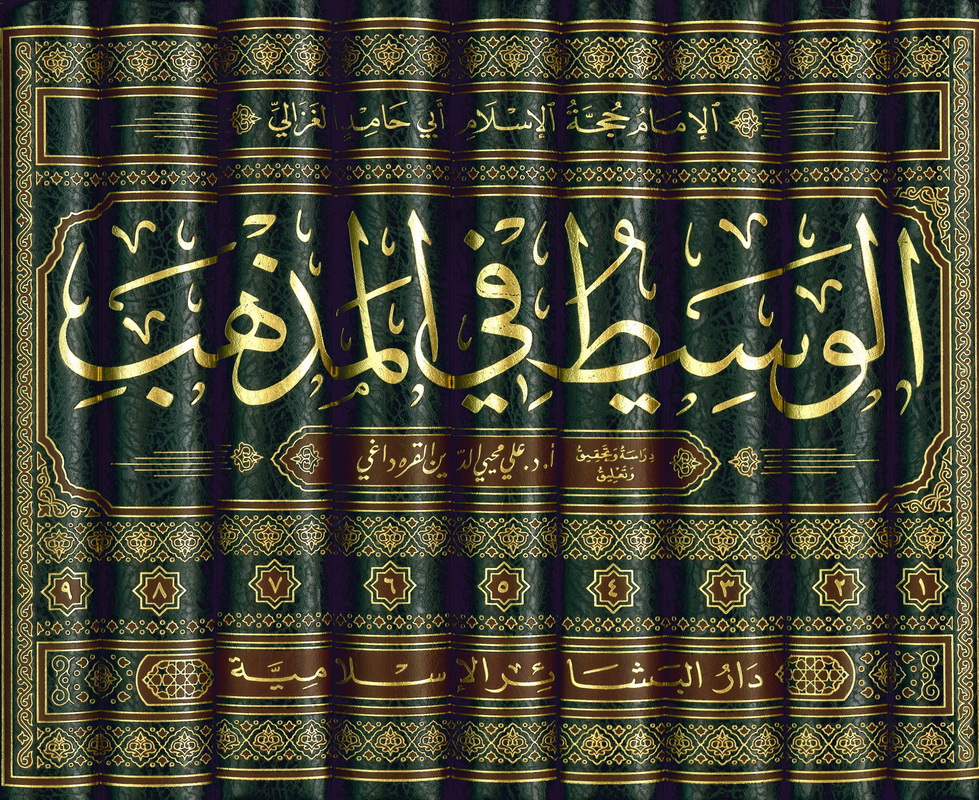 الإمام حجة الإسلام أبي حامد الغزالي
الوسيط في المذهب
دراسة وتحقيق وتعليق
أ.د. علي محيي الدين القره داغي
١ ٢ ٣ ٤ ٥ ٦ ٧ ٨ ٩
دار البشائر الإسلامية